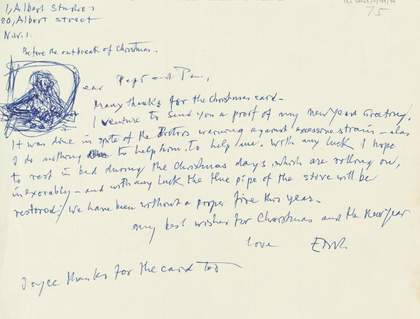 1, Albert Studios
80, Albert street
N.W.1.
Before the outbreak of Christmas.
75
Dear and
Many thanks for the Christmas card.
I venture to send you a proof of my New Year Greeting.
It was done in spite of the Doctors warning against excessive strain – alas
I do anything to help him. to help me. With any luck I hope
to rest in bed during the Christmas days which are rolling on,
inexorably – and with any luck the flue pipe of the stove will be
restored; we have been without a proper fire this year.
My best wishes for Christmas and the New Year
love
Joyce thanks for the card too